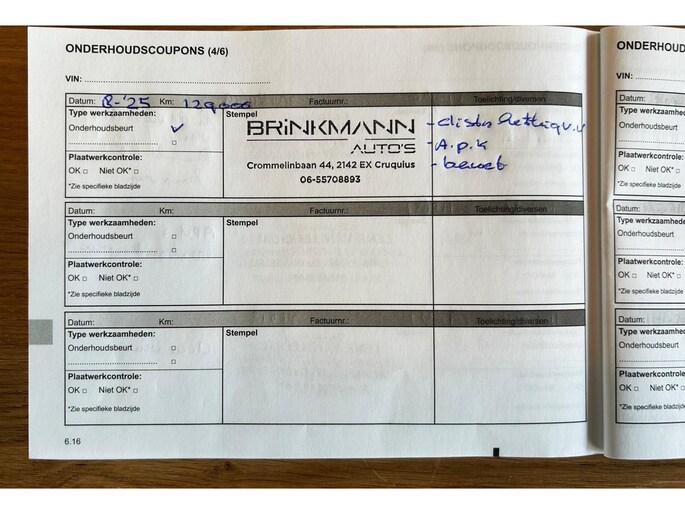 ONDERHOUDSCOUPONS (4/6)
ONDERHOUD
VIN:
VIN:
Datum: 8-'25 Km: 129000 Factuurnr.: Toelichting/diversen
Type werkzaamheden:
Onderhoudsbeurt
Plaatwerkcontrole:
OK Niet OK*
*Zie specifieke bladzijde
Stempel
BRINKMANN
AUTO'S
Crommelinbaan 44, 2142 EX Cruquius
06-55708893
- A.p.k
Datum: Km: Factuurnr.: Toelichting/diversen
Type werkzaamheden:
Onderhoudsbeurt
Plaatwerkcontrole:
OK Niet OK*
*Zie specifieke bladzijde
Stempel
Datum: Km: Factuurnr.: Toelichting/diversen
Type werkzaamheden:
Onderhoudsbeurt
Plaatwerkcontrole:
OK Niet OK*
*Zie specifieke bladzijde
Stempel
6.16
Datum:
Type werkzaamhed
Onderhoudsbeurt
Plaatwerkcontrole
OK Niet OK
*Zie specifieke bladzij
Datum:
Type werkzaamhede
Onderhoudsbeurt
Plaatwerkcontrole:
OK Niet OK*
*Zie specifieke bladzijd
Datum:
Type werkzaamhede
Onderhoudsbeurt
Plaatwerkcontrole:
OK Niet OK*
*Zie specifieke bladzijd